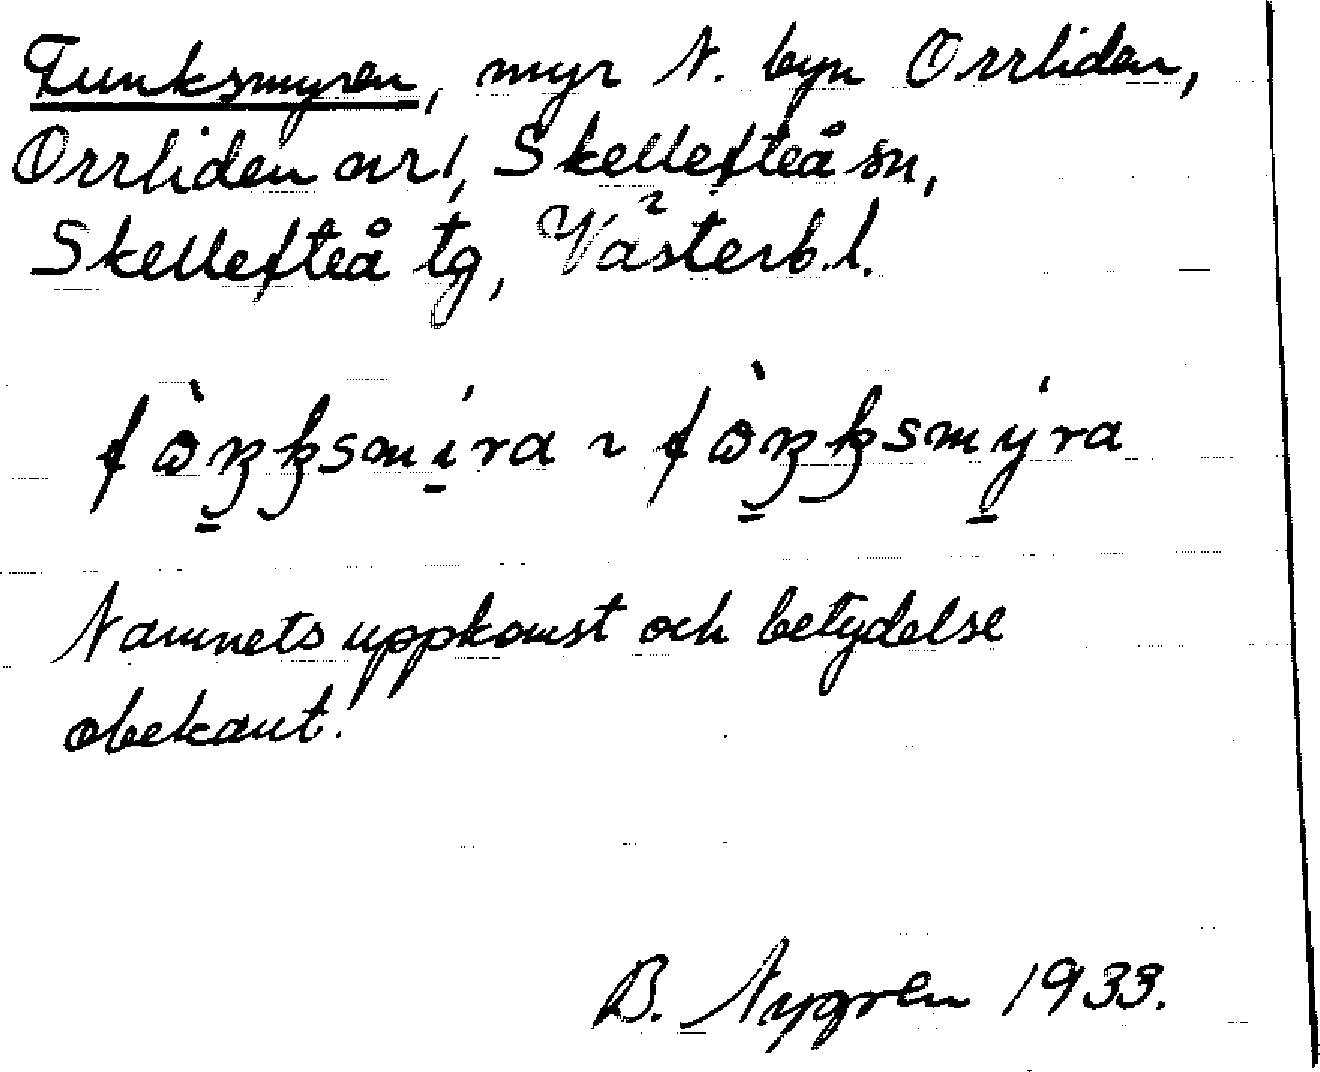 Funksmyren, myr N. byn Orrliden,
Orrliden nr 1, Skellefteå sn,
Skellefteå tg, Västerb. l.
Namnets uppkomst och betydelse
obekant.
B. Nygren 1933.